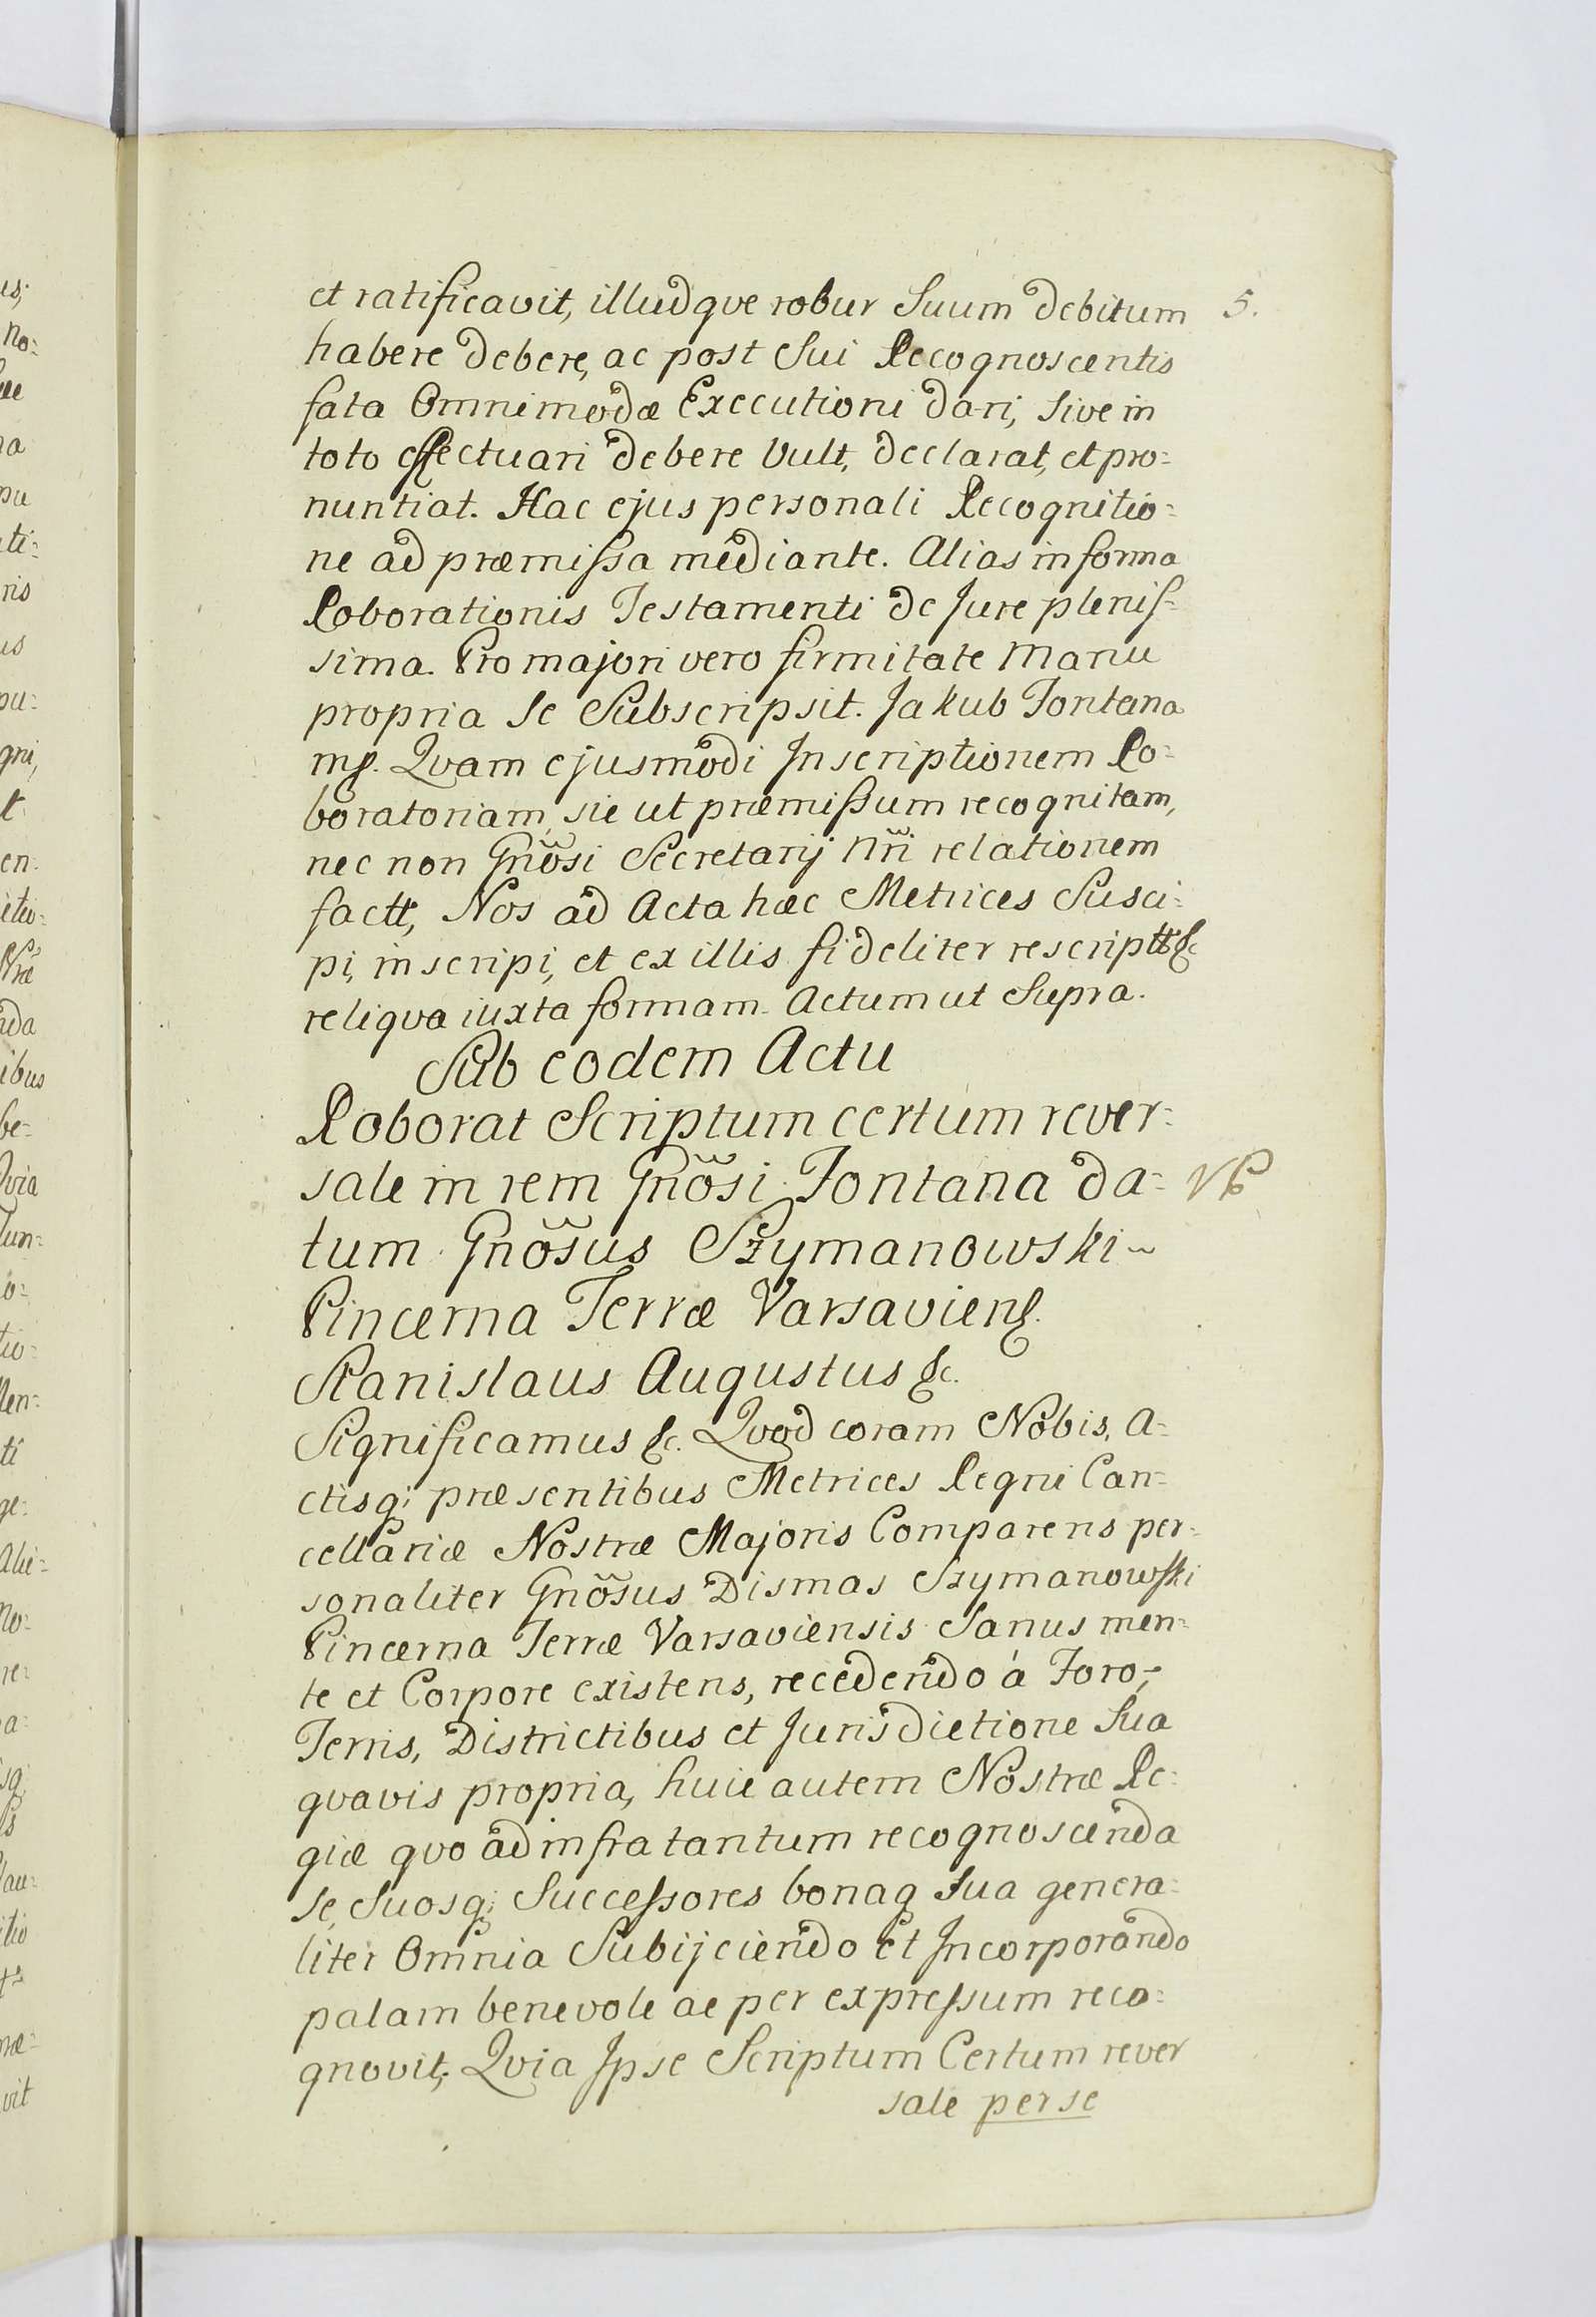 et ratificavit, illudqve robur Suum debitum 5.
habere debere, ac post Sui Recognoscentis
fata Omnimodæ Executioni dari, sive in
toto effectuari debere Vult, declarat, et pro=
nuntiat. Hac ejus personali Recognitio=
ne ad præmissa mediante. Alias in forma
Roborationis Testamenti de Jure plenis=
sima. Pro majori vero firmitate Manu
propria Se Subscripsit. Jakub Fontana
mp. Qvam ejusmodi Inscriptionem Ro=
boratoriam, sic ut præmissum recognitam,
nec non Gnõsi Secretarij Nr̃i relationem
factt, Nos ad Acta hæc Metrices Susci=
pi, inscripi, et ex illis fideliter rescriptt &c
reliqva iuxta formam. Actum ut Supra.
Sub eodem Actu
Roborat Scriptum certum rever=
sale in rem Gnõsi Fontana da=
tum Gnõsus Szymanowski ~
Pincerna Terræ Varsaviens.
Stanislaus Augustus &c.
Significamus &c. Qvod coram Nobis, A=
ctisq; præsentibus Metrices Regni Can=
cellariæ Nostræ Majoris Comparens per=
sonaliter Gnõsus Dismas Szymanowski
Pincerna Terræ Varsaviensis Sanus men=
te et Corpore existens, recedendo á Foro,
Terris, Districtibus et Jurisdictione Sua
qvavis propria, huic autem Nostræ Re=
giæ qvo ad infra tantum recognoscenda
Se, Suosq; Successores bonaq Sua genera=
liter Omnia Subijciendo et Incorporando
palam benevole ac per expressum reco=
gnovit; Qvia Ipse Scriptum Certum rever
sale per se